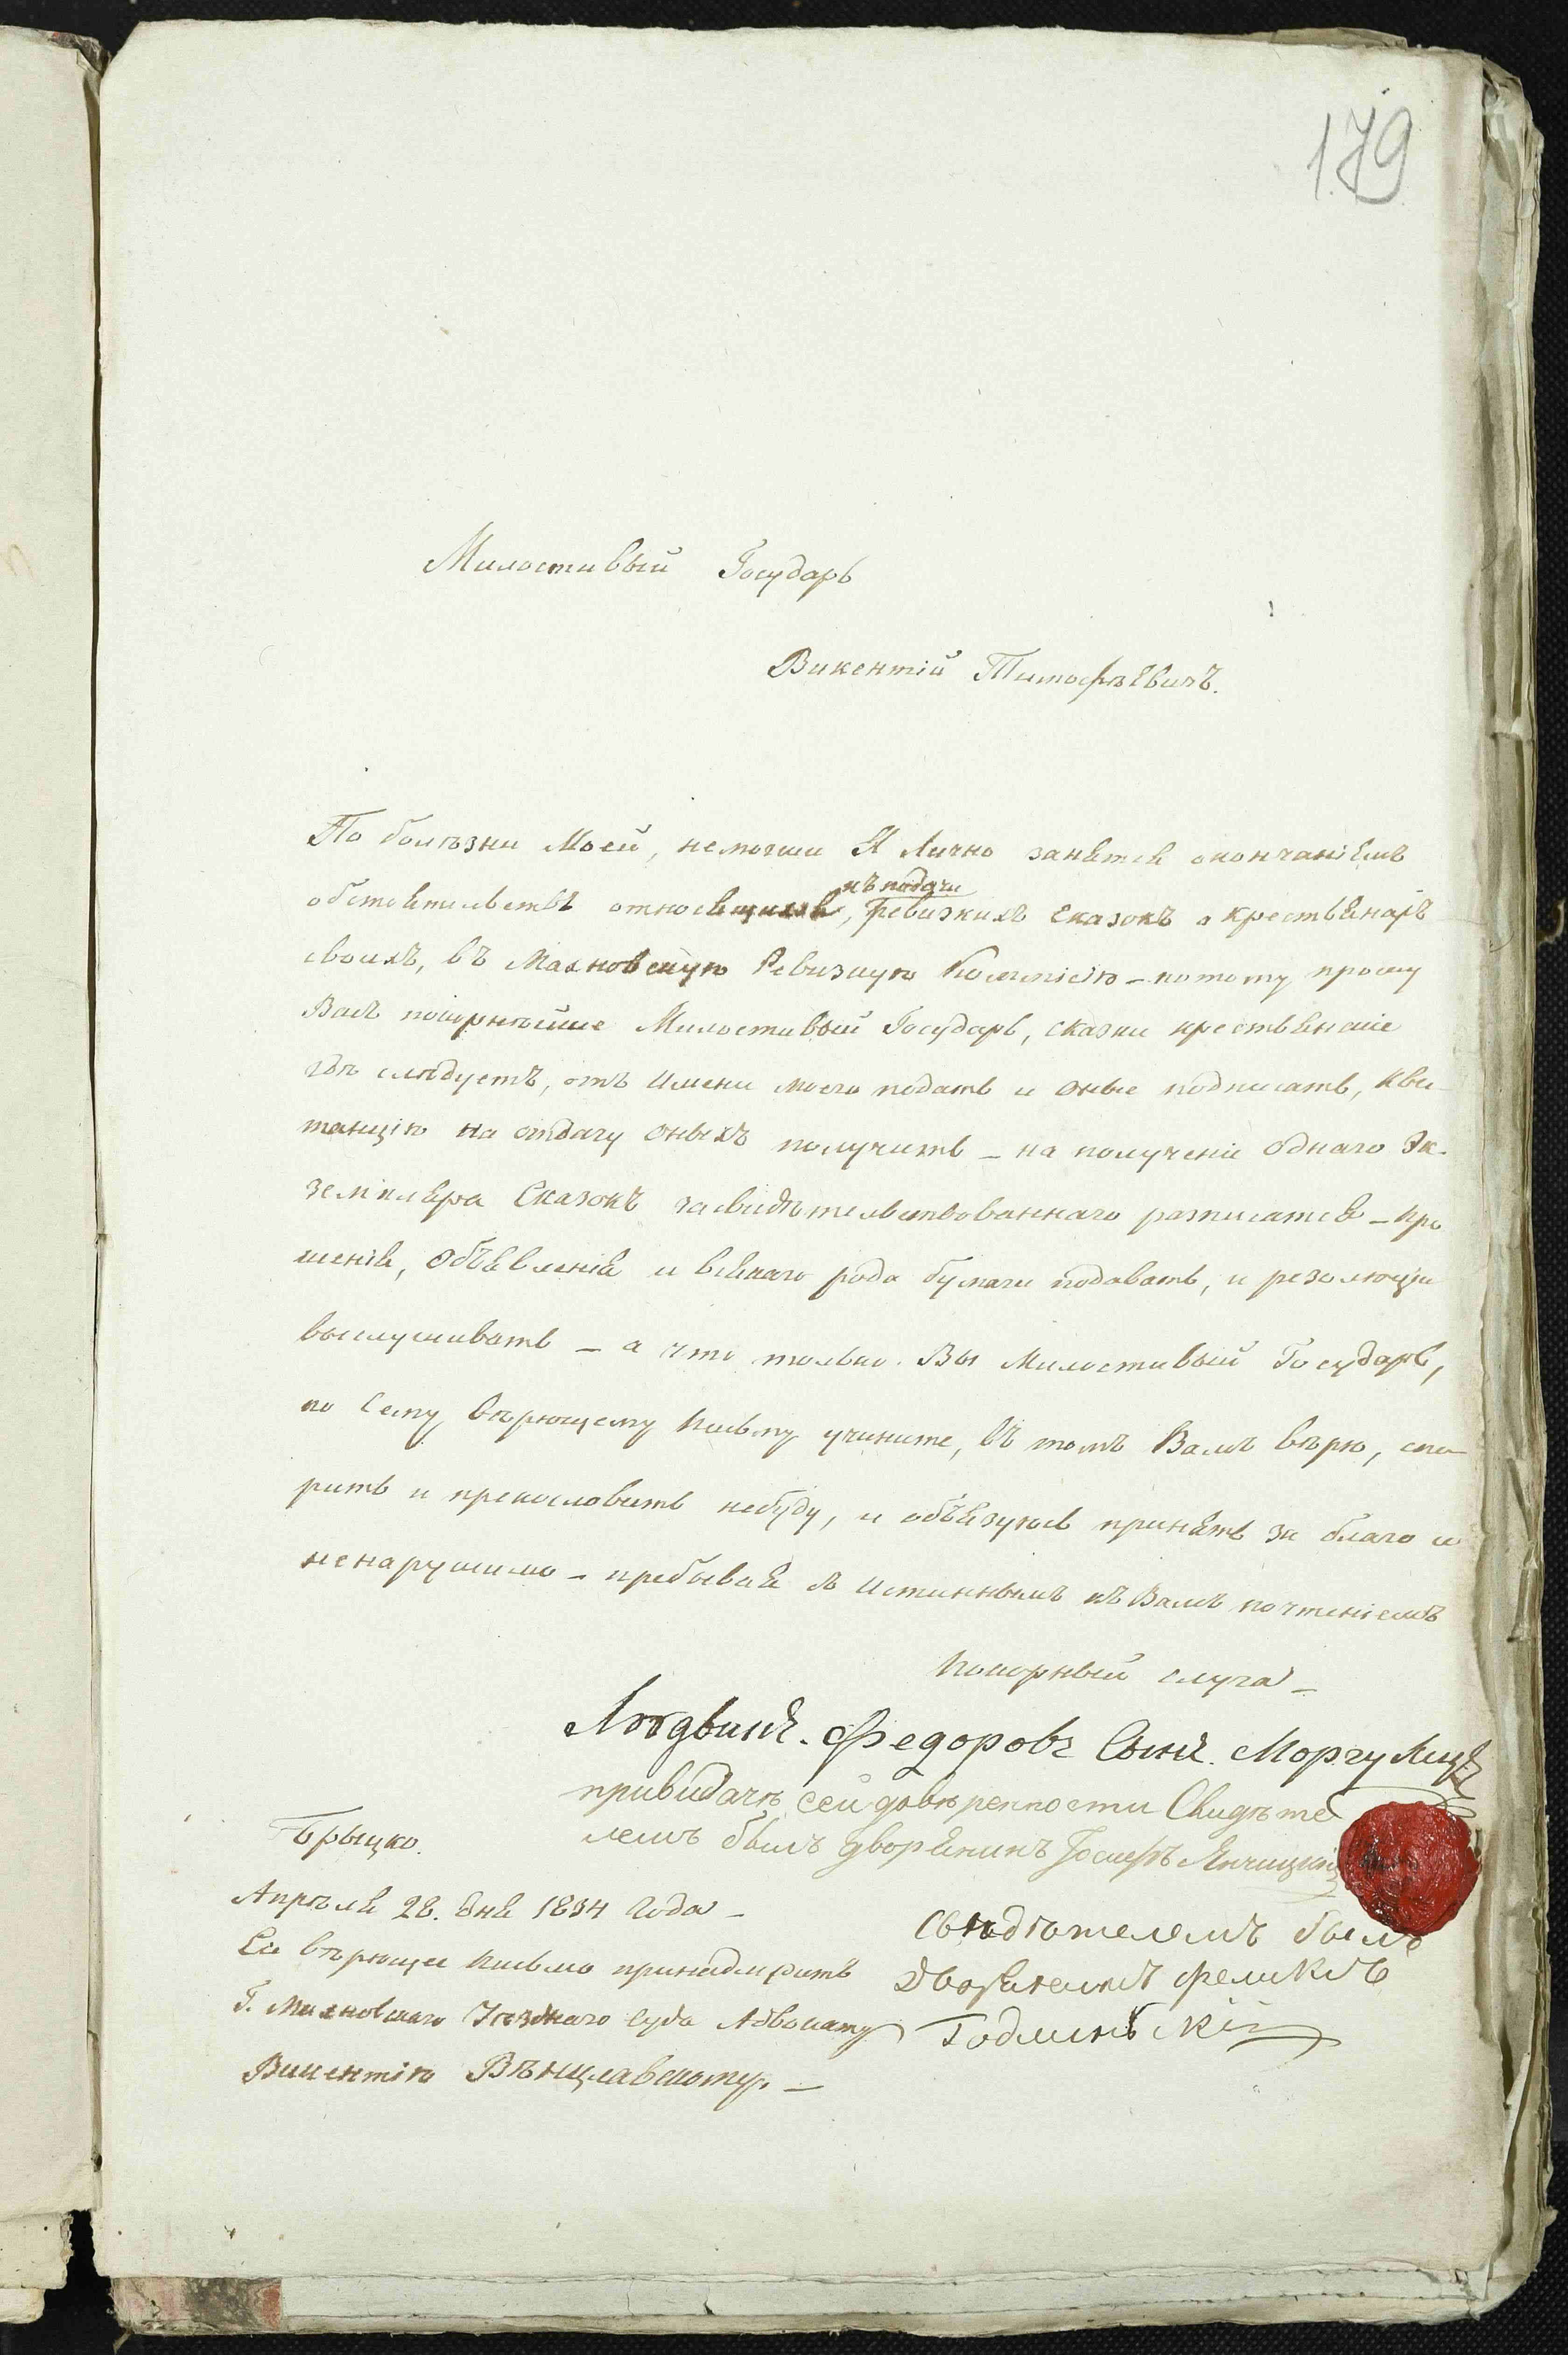 179
Милостивый Государь
Викентій Тимофѣевичъ.
По болѣзни Моей, немогши Я Лично занятся окончаніемъ
къ подачи
обстоятельствъ относящихся, Ревизкихъ Сказокъ о Крестьянахъ
своихъ, въ Махновскую Ревизкую Комисію – потому прошу
Васъ покорнѣйше Милостивый Государь, сказки крестьянскіе
гдѣ слѣдуетъ, отъ Имени моего подать и оные подписать, Кви-
танцію на отдачу оныхъ получить – на полученіе однаго Эк-
земпляра Сказокъ засвидѣтельствованнаго розписатся – Про
шенія, Объявленія и всякаго рода бумаги подавать, и резолюціи
выслушивать – а что только Вы Милостивый Государь,
по Сему вѣрющему Письму учините, въ томъ Вамъ вѣрю, спо-
рить и прекословить небуду, и объязуюсь принять за благо и
ненарушимо – пребывая съ Истиннымъ къ Вамъ почтеніемъ
Покорный слуга –
Людвикъ Федоровъ Сынъ Моргулецъ
привидачѣ сей довѣренности Свидѣте
лемъ былъ дворянинъ Іосифъ Янчицкій
Брыцко.
Апрѣля 28. дня 1834 Года –
Сіе вѣрющее Письмо принадлежитъ
Г. Махновскаго Уѣзднаго Суда Адвокату
Викентію Вѣнцлавскому. –
Свѣдѣтелемъ былъ
Дворянинъ Феликсъ
Годлинскій